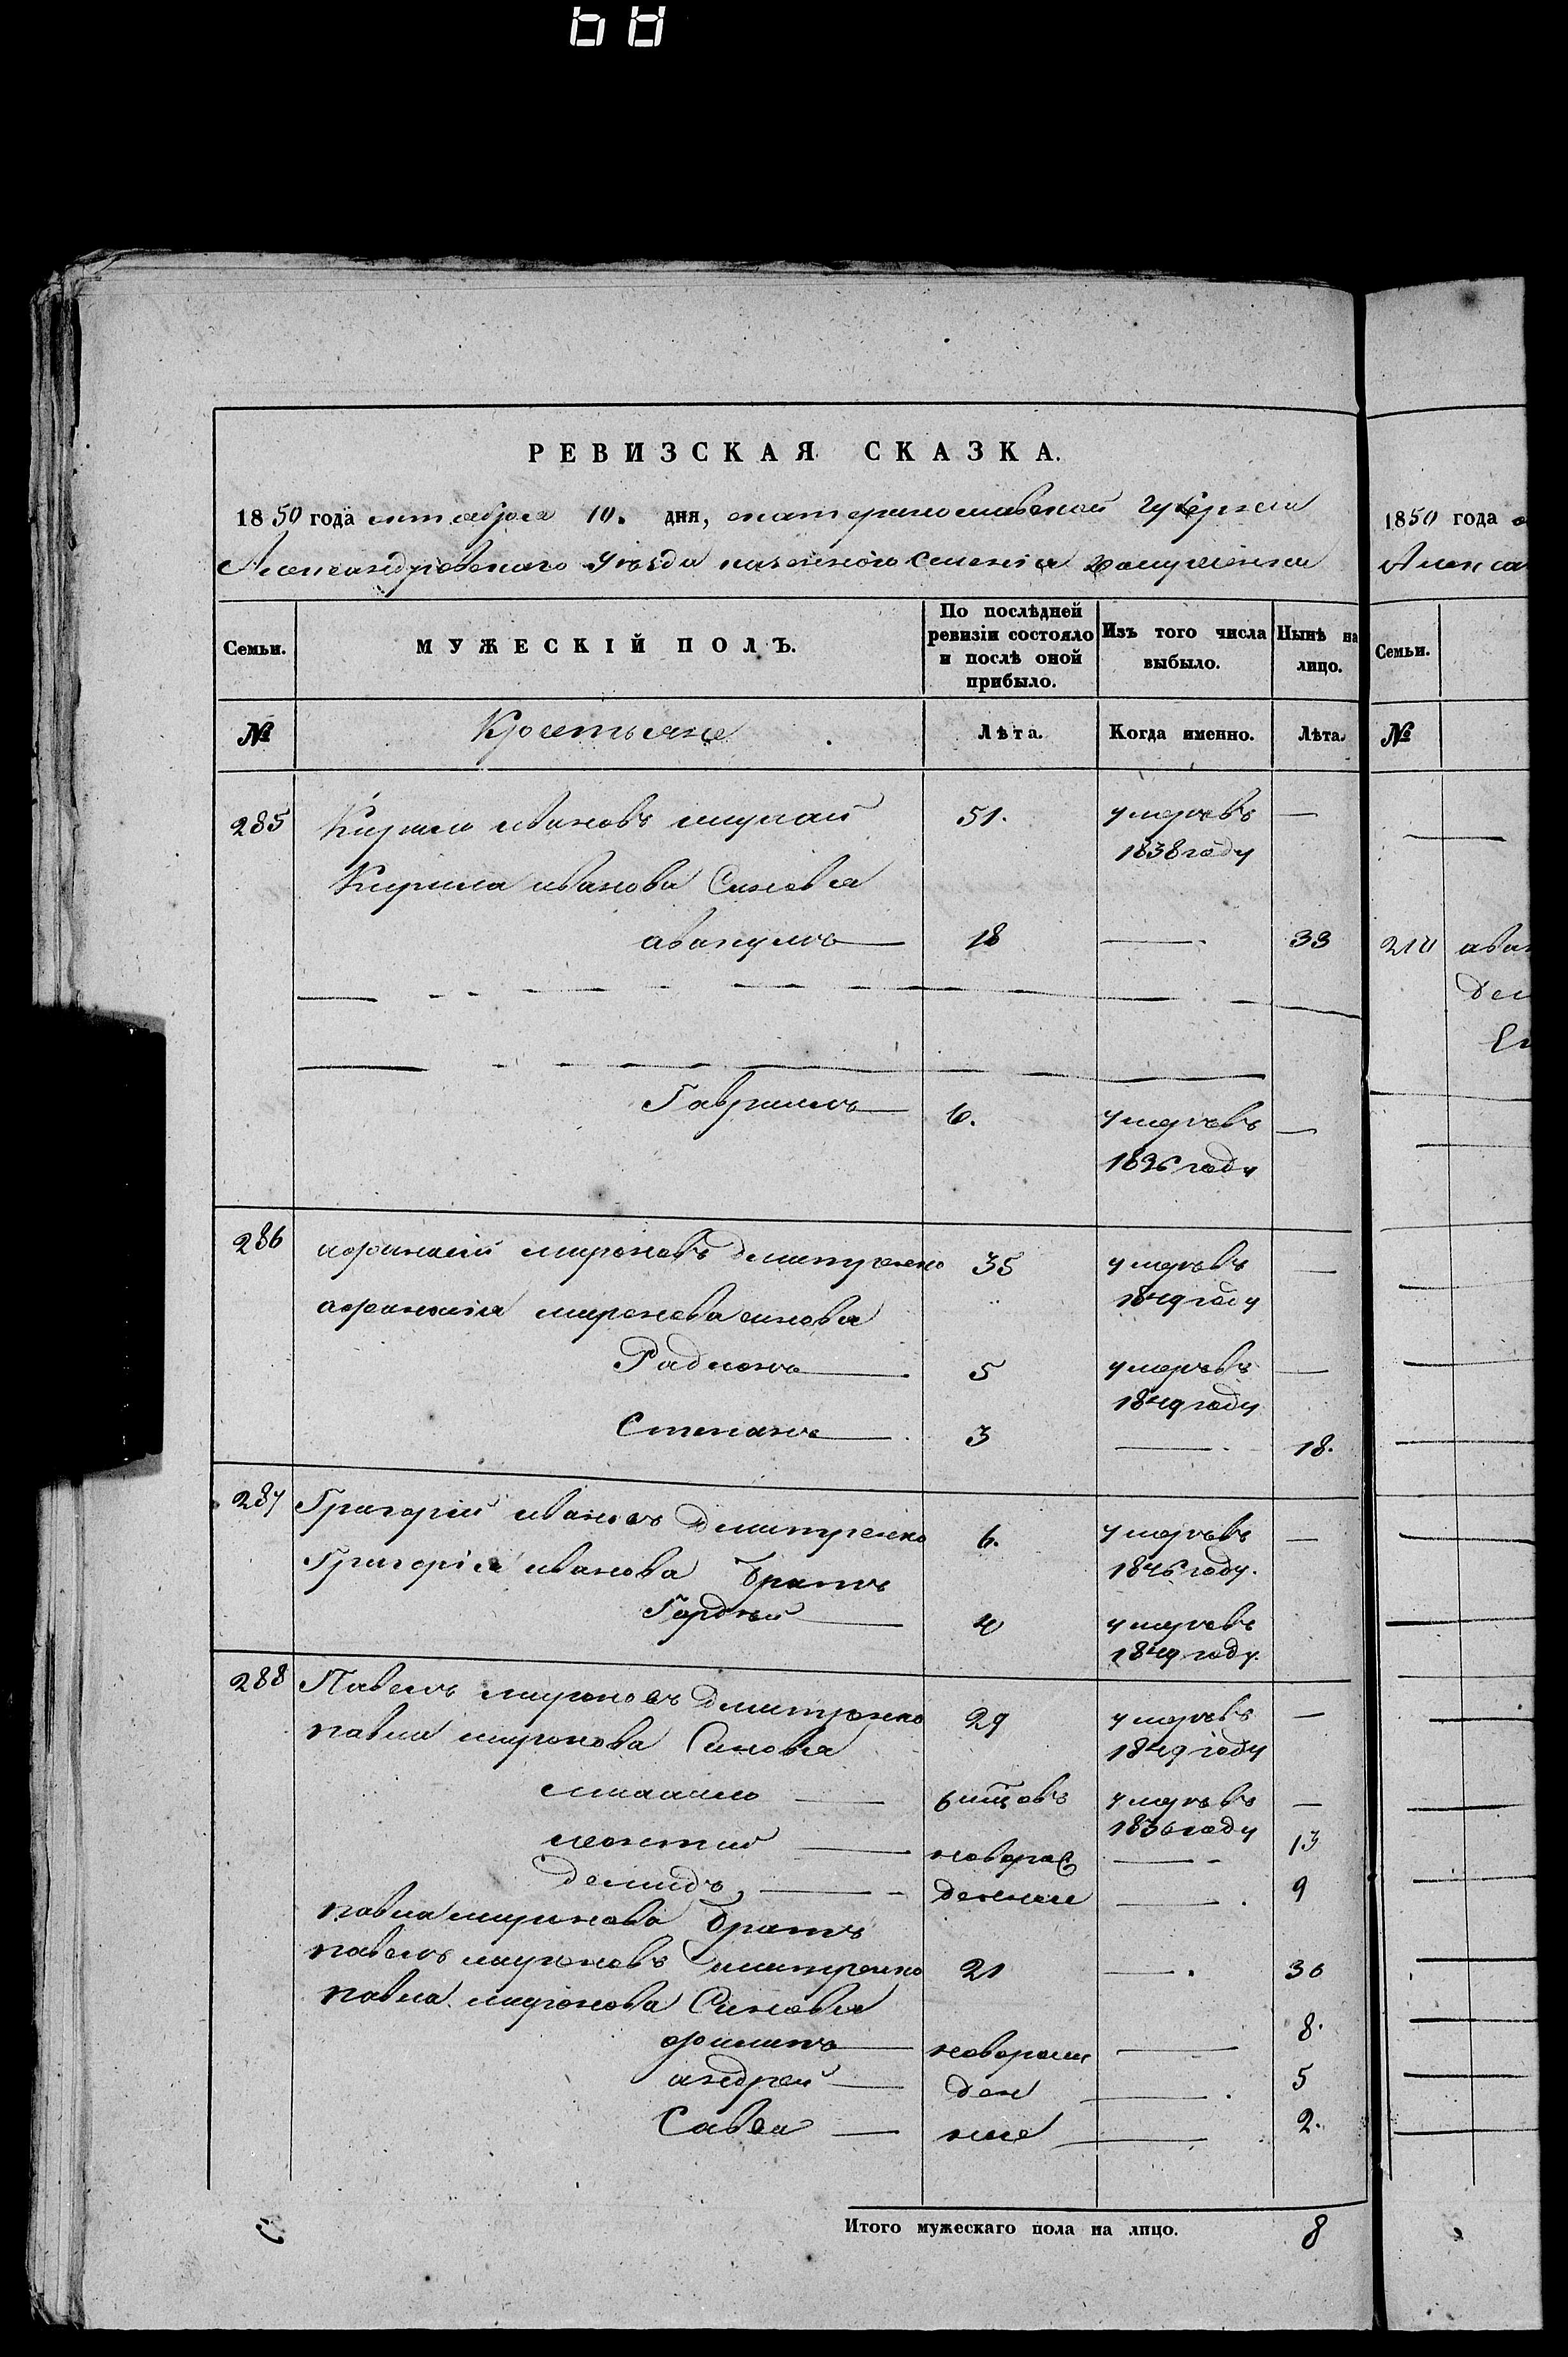 РЕВИЗСКАЯ СКАЗКА.
1850 года октября 10. дня, екатеринославской губернiи
Александровского уезда казенного селенiя
Семьи.
МУЖЕСКIЙ ПОЛЪ.
По послѣдней ревизiи состояло и послѣ оной прибыло.
Изъ того числа выбыло.
Нынѣ на лицо.
№
Крестьяне
Лѣта.
Когда именно.
Лѣта.
285 Кирило ивановъ 51. умеръ въ —
1838 году
Кирила иванова Синовья
авакумъ — 18 — 33
Гаврiилъ — 6. умеръ въ —
1836 году
286 афанасiй мироновъ дмитренко 35 умеръ въ —
1849 году
афанасiя миронова синовья
Радионъ — 5 умеръ въ —
1849 году
Степанъ — 3 — 18.
287 Григорiй ивановъ дмитренко 6. умеръ въ —
Григорiя иванова братъ 1846 году.
Гордѣй — 4 умеръ въ
1849 году.
288 Павелъ мироновъ дмитренко 29 умеръ въ —
павла миронова Синовья 1849 году
— 6 умеръ въ —
1836 году
леонтiй — новорож — 13
демидъ — денные — 9
павла миронова братъ
павелъ мироновъ дмитренко 21 — 36
павла миронова Синовья
филипъ — новорож — 8.
андрей — ден — 5
Савва — ные — 2.
Итого мужескаго пола на лицо. 8
1850 года
Алекса
Семьи.
№
210